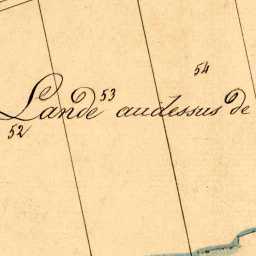 54
53
Lande audessus de
52